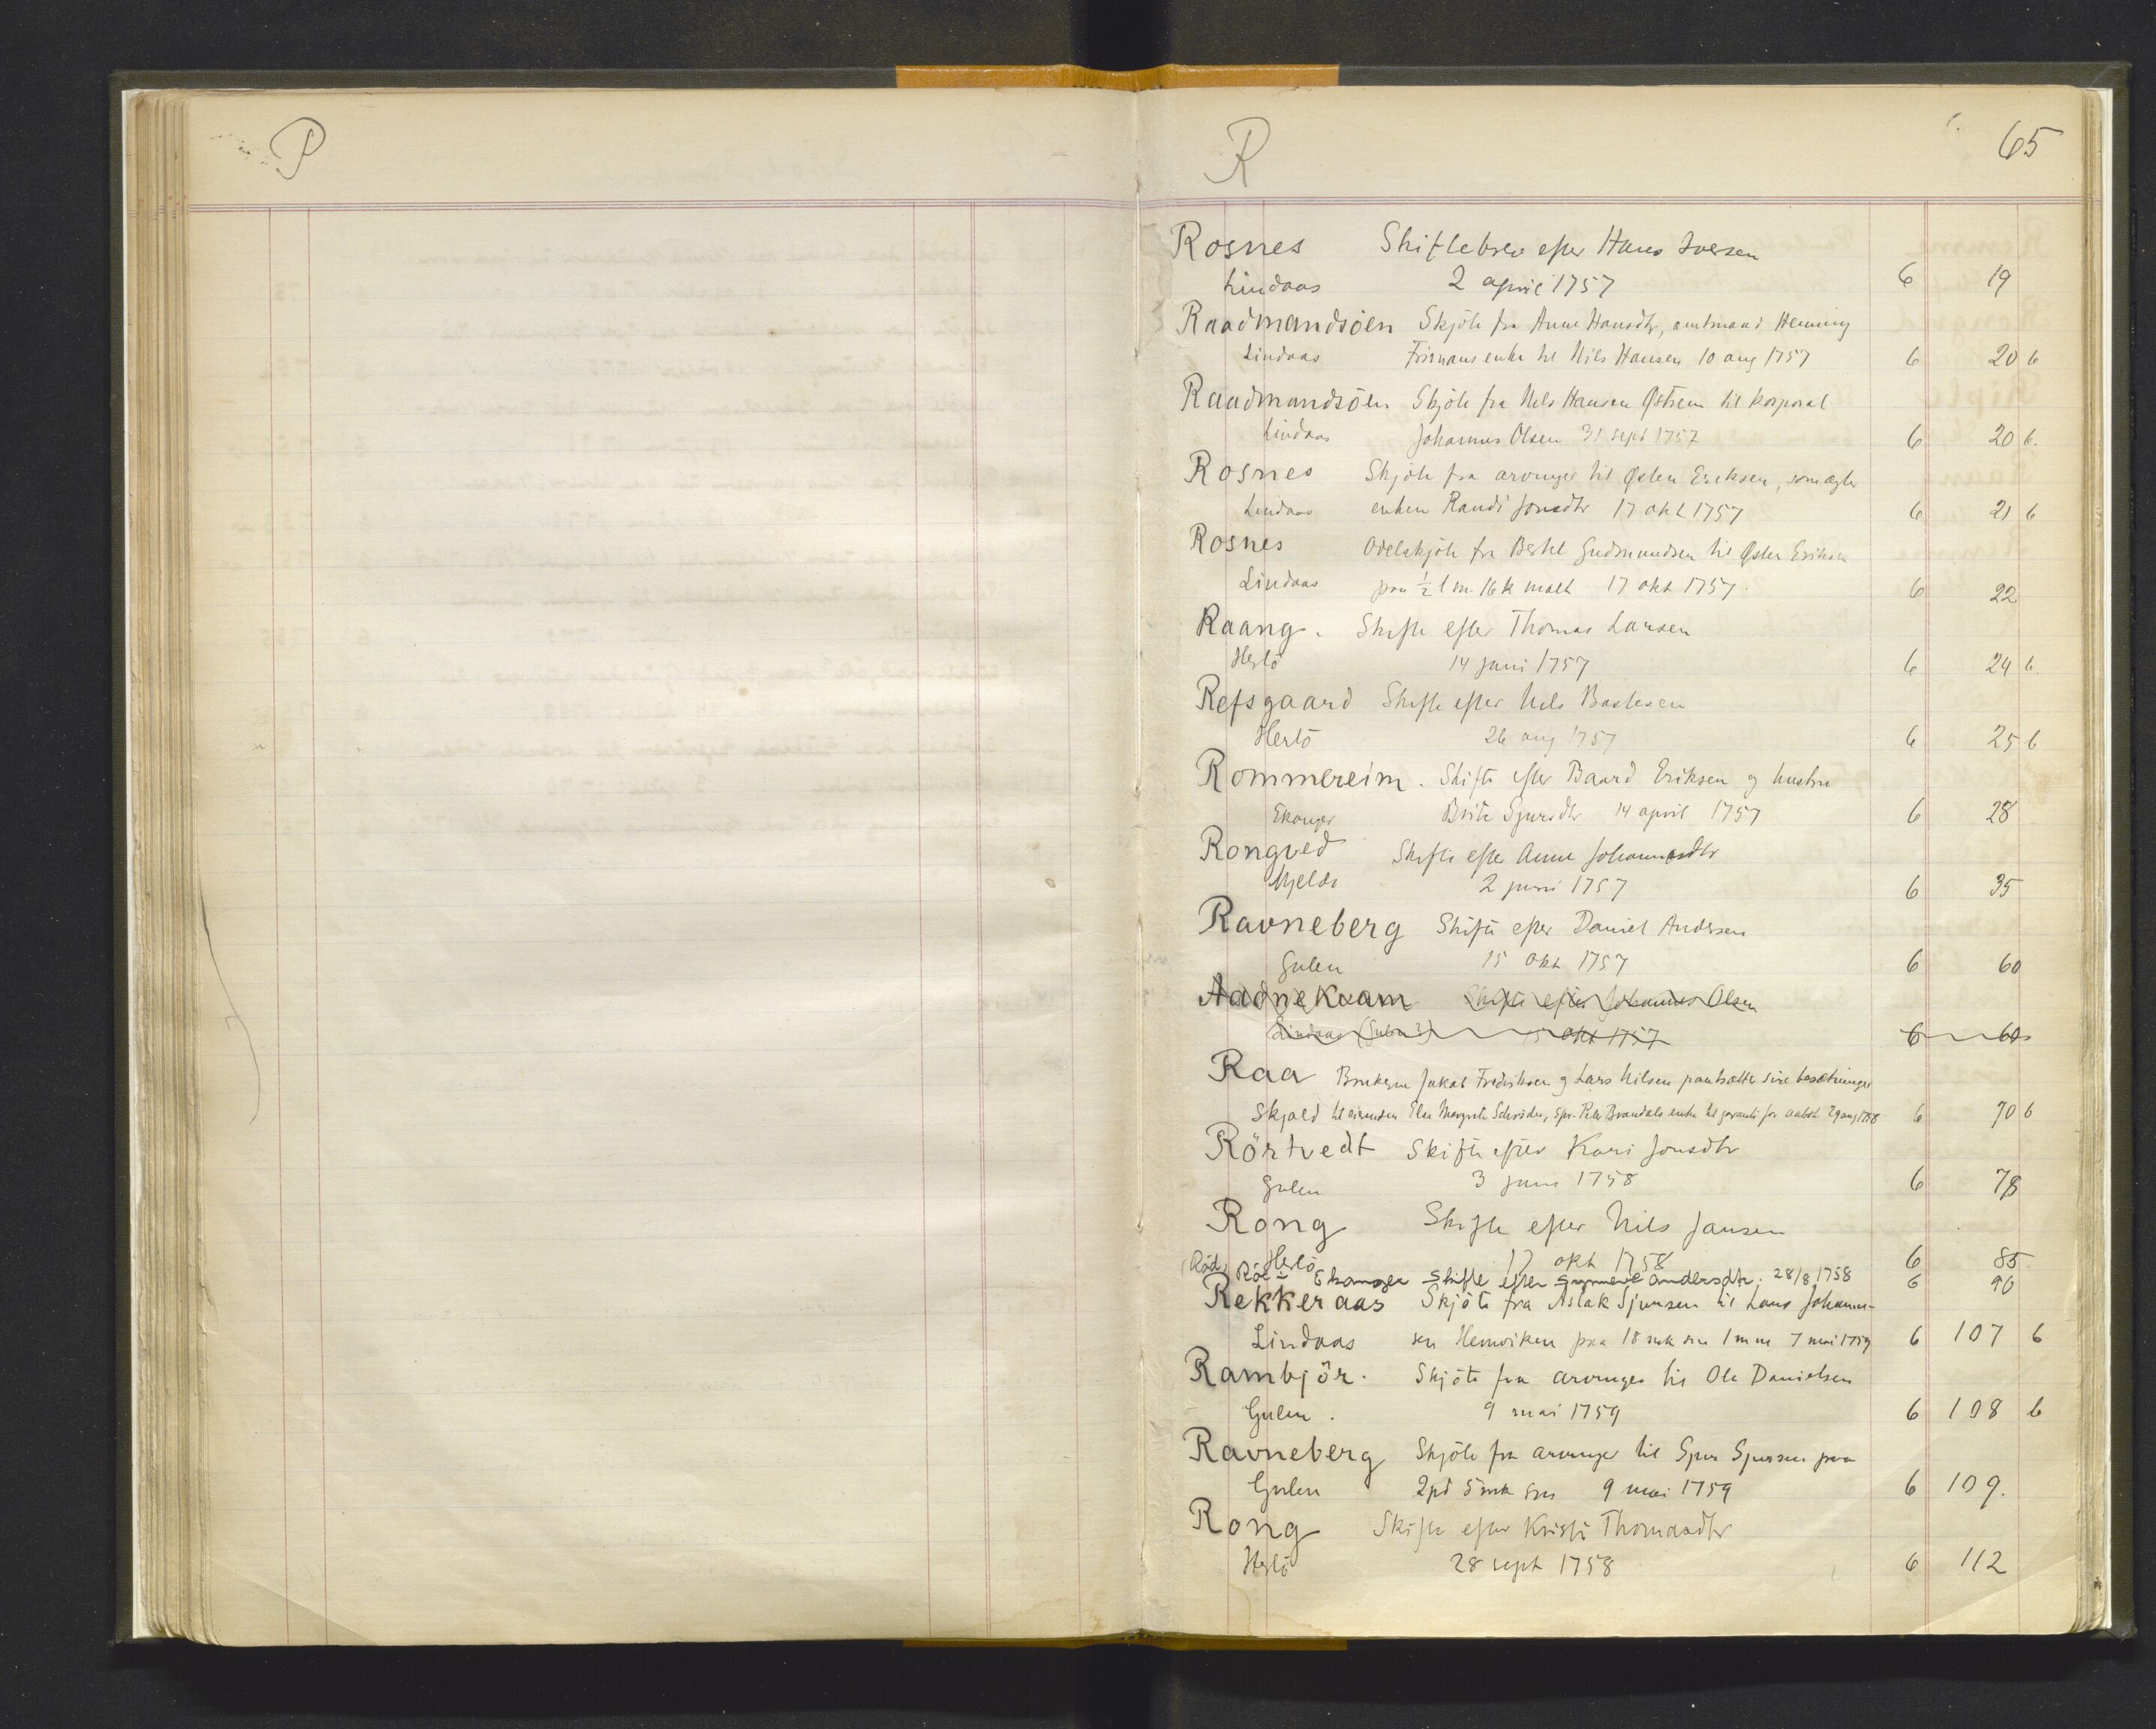 P
R
65
Rosnes Skiftebrev efter Hans Iversen
Lindaas 2 april 1757 6 19
Raadmandsöen Skjöte fra Anne Hansdtr, amtmand Henning
Lindaas Frimans enke til Nils Hansen 10 aug 1757 6 20 b
Raadmandsöen Skjöte fra Nils Hansen Östrem til korporal
Lindaas Johannes Olsen 31 sept 1757 6 20 b.
Rosnes Skjöte fra arvinger til Östen Eriksen, som ægter
Lindaas enken Randi Jonsdtr 17 okt 1757 6 21 b
Rosnes Odelskjöte fra Bertel Gudmundsen til Östen Eriksen
Lindaas paa ½ l m. 16 k malt 17 okt 1757. 6 22
Raang. Skifte efter Thomas Larsen
Herlö 14 juni 1757 6 24 b.
Refsgaard Skifte efter Nils Bastesen
Herlö 26 aug 1757 6 25 b
Rommereim. Skifte efter Baard Eriksen og hustru
Ekanger Brite Sjursdtr 14 april 1757 6 28
Rongved Skifte efter Anne Johannesdtr
Mjelde 2 juni 1757 6 35
Ravneberg Skifte efter Daniel Andersen
Gulen 15 okt 1757 6 60
Aadnekvam Skifte efter Johannes Olsen
Lindaas (Gulen?) 15 okt 1757 6 60
Raa Brukerne Jakob Fredriksen og Lars Nilsen pantsætter sine besætninger
Skjold til eiermden Else Margrete Schröder, spr. Peter Brandals enke til garanti for aabot 29 aug 1758 6 70 b
Rörtvedt Skifte efter Kari Jonsdtr
Gulen 3 juni 1758 6 78
Rong Skifte efter Nils Jansen
Herlö 17 okt 1758 6 85
(Röd) Röe - Ekanger Skifte efter Synneve Andersdtr. 28/8 1758 6 90
Rekkeraas Skjöte fra Aslak Sjursen til Lars Johanne-
Lindaas sen Henviken paa 18 mk sm 1 m m 7 mai 1759 6 107 b
Rambjör. Skjöte fra arvinger til Ole Danielsen
Gulen. 9 mai 1759 6 108 b
Ravneberg Skjöte fra arvinger til Sjur Sjursen paa
Gulen 2 pd 5 mk sm 9 mai 1759 6 109.
Rong Skifte efter Kristi Thomasdtr
Herlö 28 sept 1758 6 112